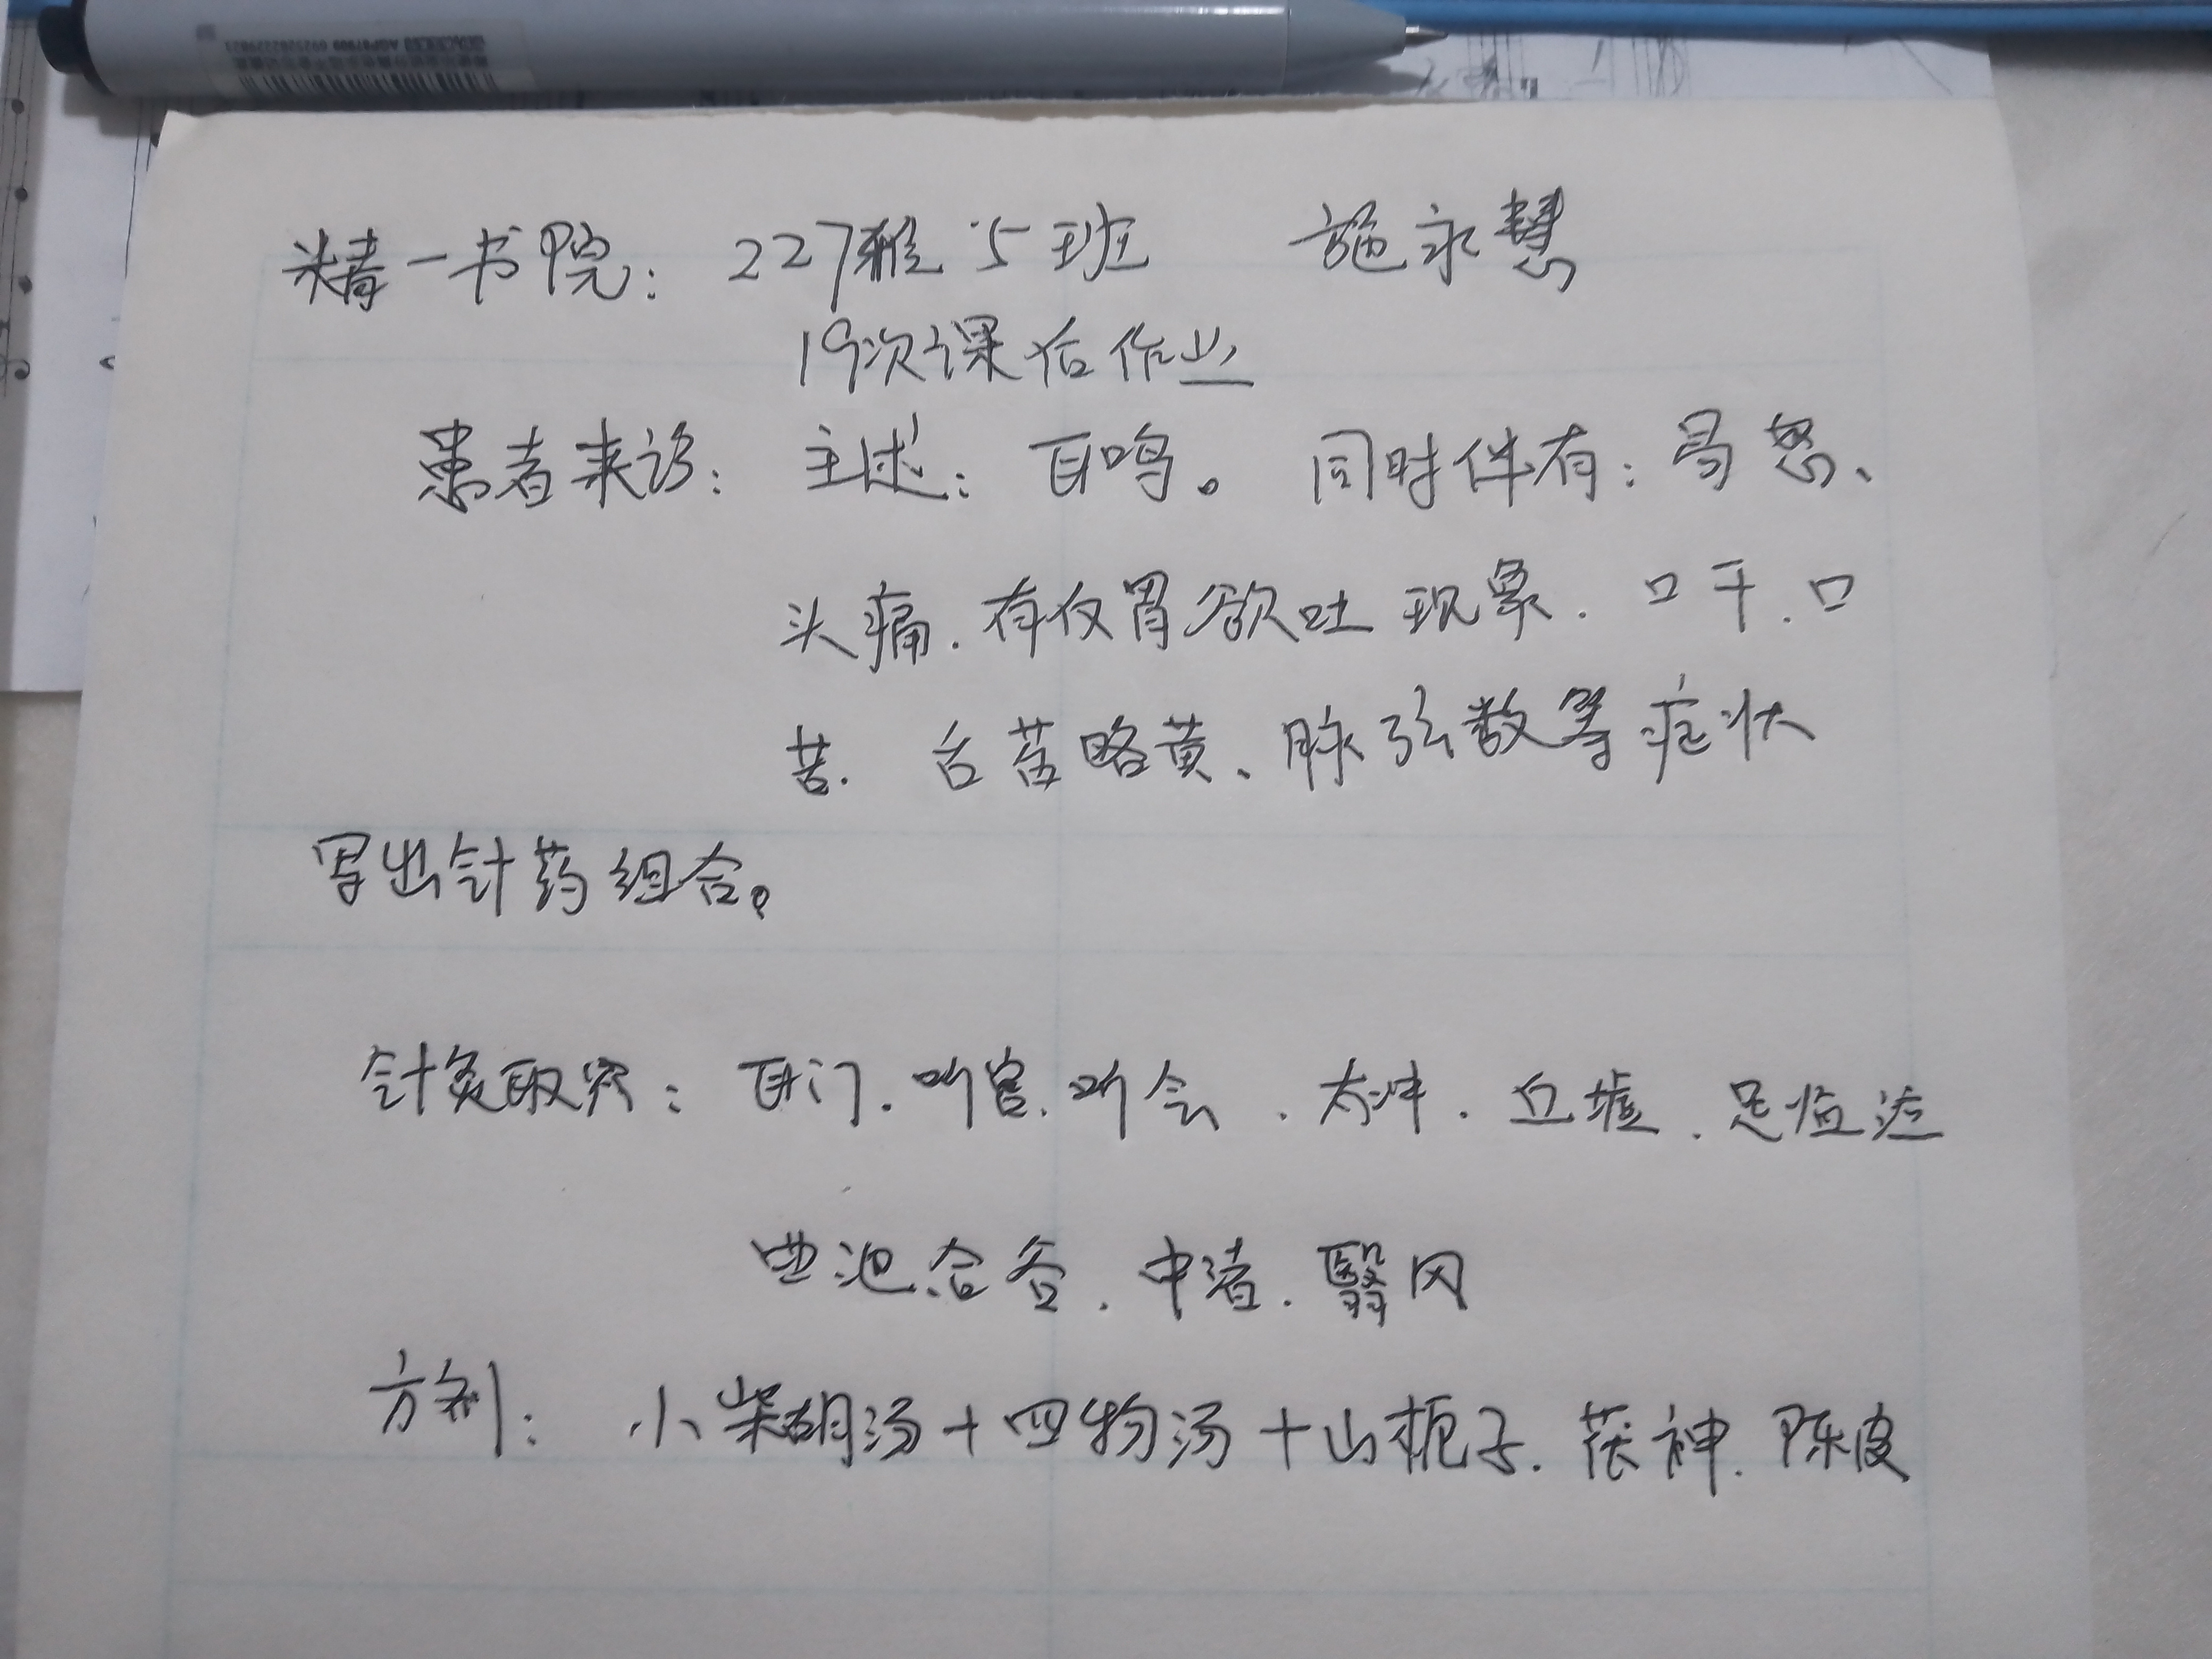 精一书院：227雅5班 施永慧
19次课后作业
患者来诊：主述：耳鸣。同时伴有：易怒、
头痛.有仅胃欲吐现象.口干.口
苦.舌苔略黄、脉弦数等症状
写出针药组合。
针灸取穴：耳门.听宫.听会.太冲.丘墟.足临泣
曲池合谷.中渚.翳风
方剂：小柴胡汤+四物汤+山栀子.茯神.陈皮